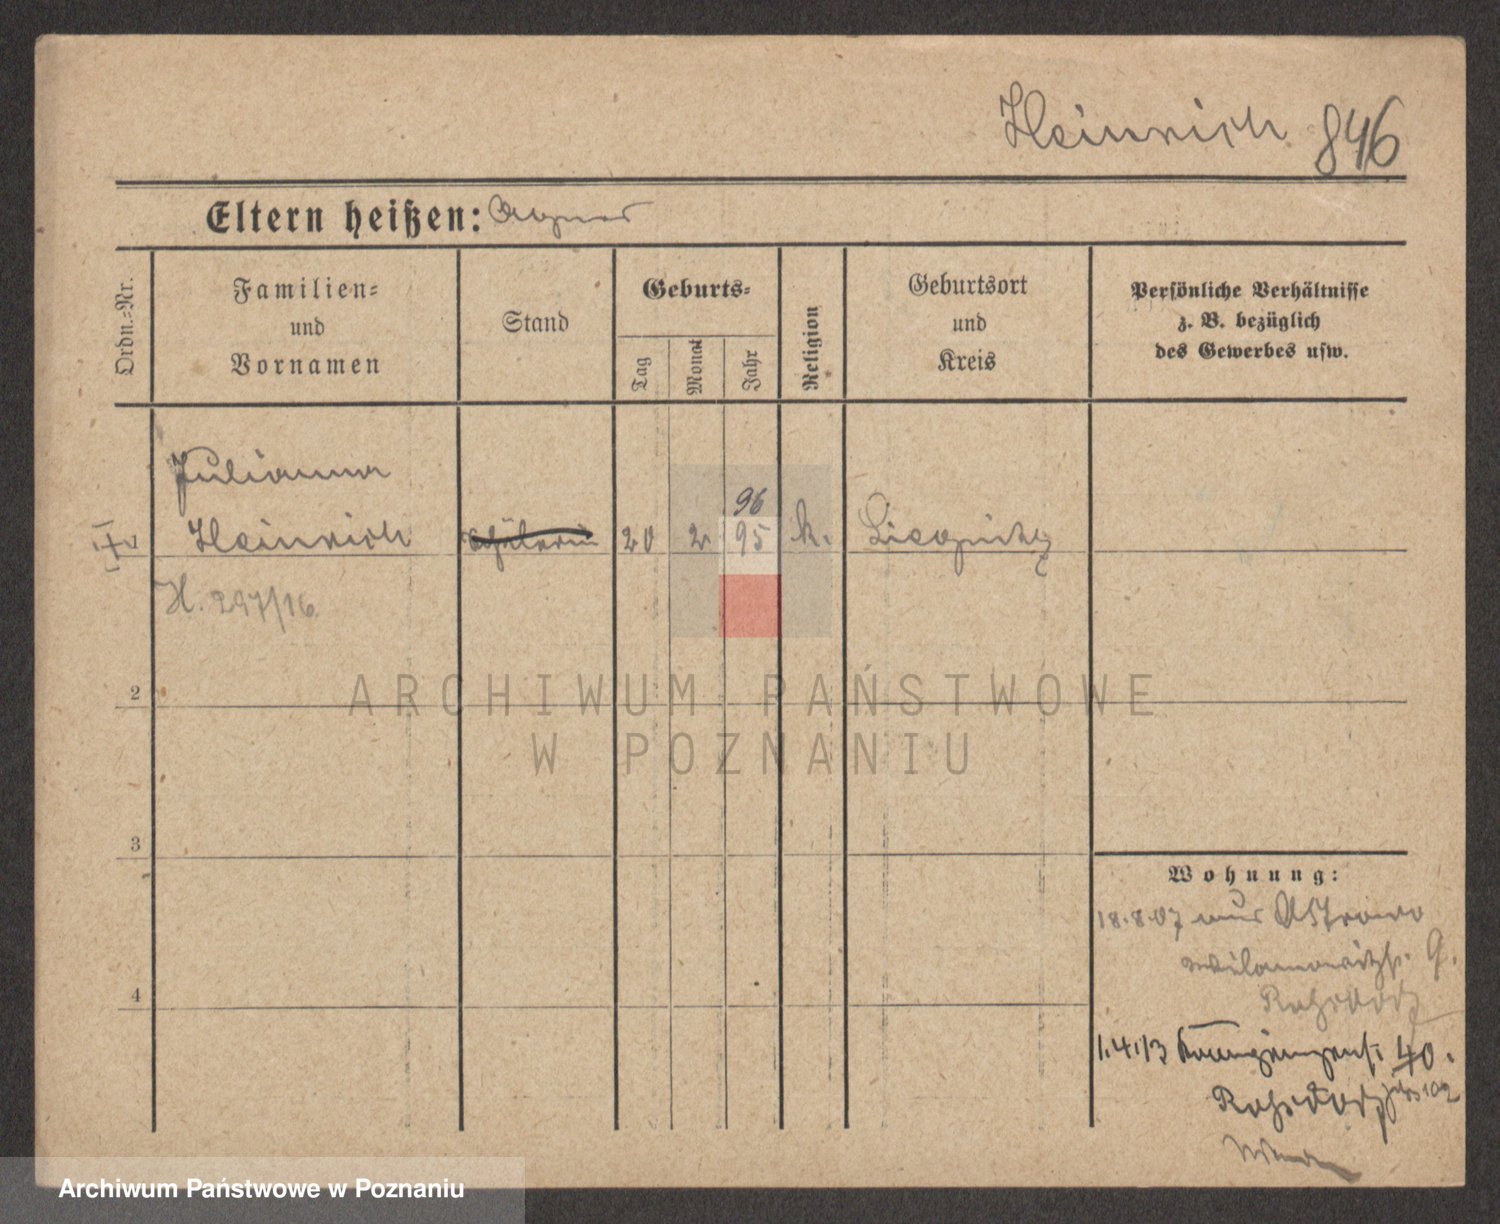 Heinrich 846
Eltern heißen:
Ordn.-Nr.
Familien-
und
Vornamen
Stand
Geburts-
Tag
Monat
Jahr
Religion
Geburtsort
und
Kreis
Persönliche Verhältnisse
z. B. bezüglich
des Gewerbes usw.
Julianna
Heinrich
20 2 95 96
k.
H. 297/16
2
3
4
Wohnung:
18.8.07 aus Ostrowo
9.
1.4.13 40.
ARCHIWUM PAŃSTWOWE
W POZNANIU
Archiwum Państwowe w Poznaniu